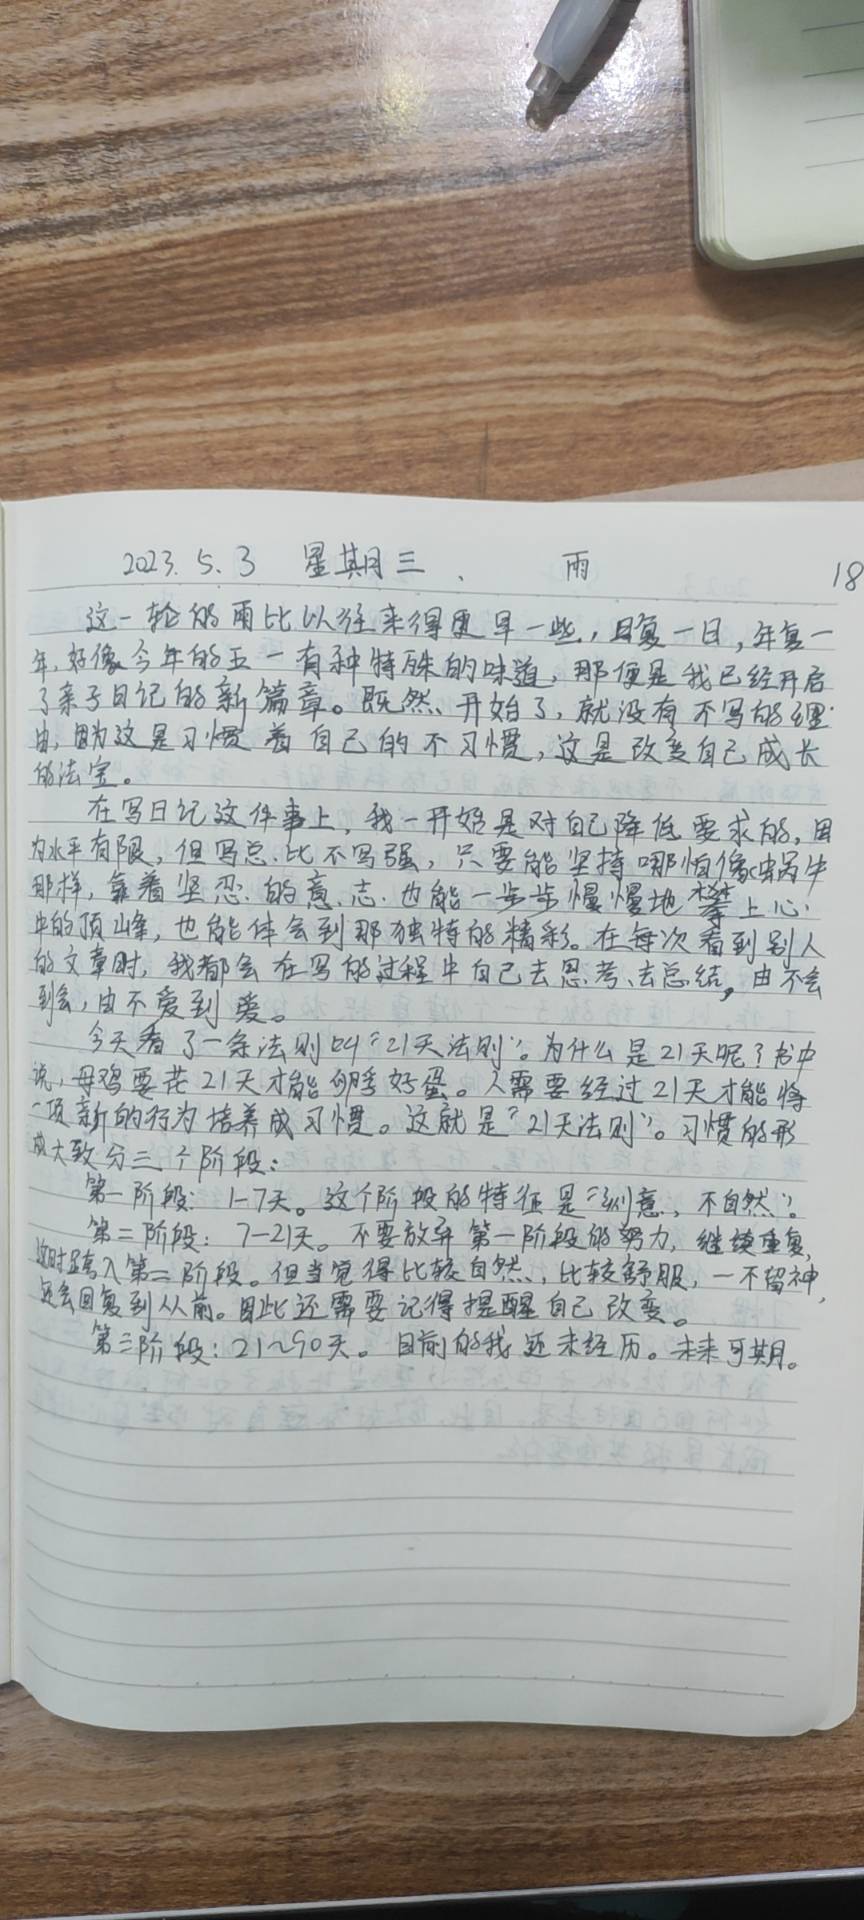 2023.5.3 星期三、 雨 18
这一轮的雨比以往来得更早一些，日复一日，年复一
年，好像今年的五一有种特殊的味道，那便是我已经开启
了亲子日记的新篇章。既然、开始了，就没有不写的理
由，因为这是习惯着自己的不习惯，这是改变自己成长
的法宝。
在写日记这件事上，我一开始是对自己降低要求的，因
为水平有限，但写总比不写强，只要能坚持哪怕像蜗牛
那样，靠着坚忍的意志也能一步步慢慢地攀上心
中的顶峰，也能体会到那独特的精彩。在每次看到别人
的文章时，我都会在写的过程中自己去思考、去总结，由不会
到会，由不爱到爱。
今天看了一条法则叫“21天法则”。为什么是21天呢？书中
说，母鸡要花21天才能孵好蛋。人需要经过21天才能将
一项新的行为培养成习惯。这就是“21天法则”。习惯的形
成大致分三个阶段：
第一阶段：1-7天。这个阶段的特征是“刻意，不自然”。
第二阶段：7-21天。不要放弃第一阶段的努力，继续重复，
这时跨入第二阶段。但当觉得比较自然，比较舒服，一不留神，
还会回复到从前。因此还需要记得提醒自己改变。
第三阶段：21~90天。目前的我还未经历。未来可期。